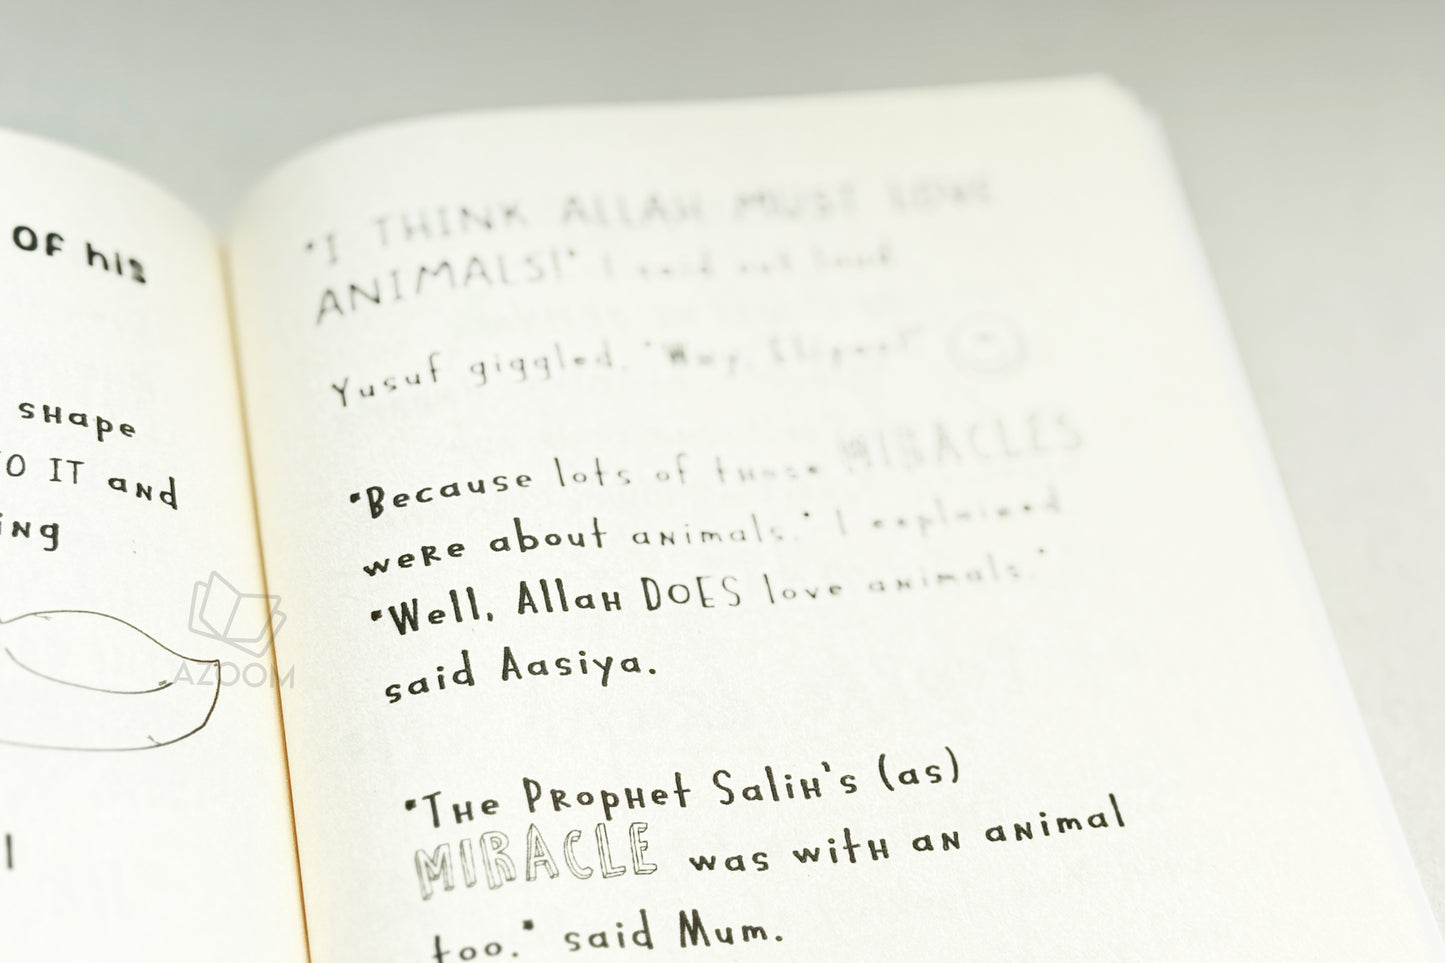 OF his
shape
IT and
"I THINK ALLAH MUST LOVE
ANIMALS!" I said out loud
Yusuf giggled. "Way, Eliyas!"
"Because lots of those MIRACLES
were about animals." I explained
"Well, Allah DOES love animals."
said Aasiya.
"The Prophet Salih's (as)
MIRACLE was with an animal
too." said Mum.
AZOOM